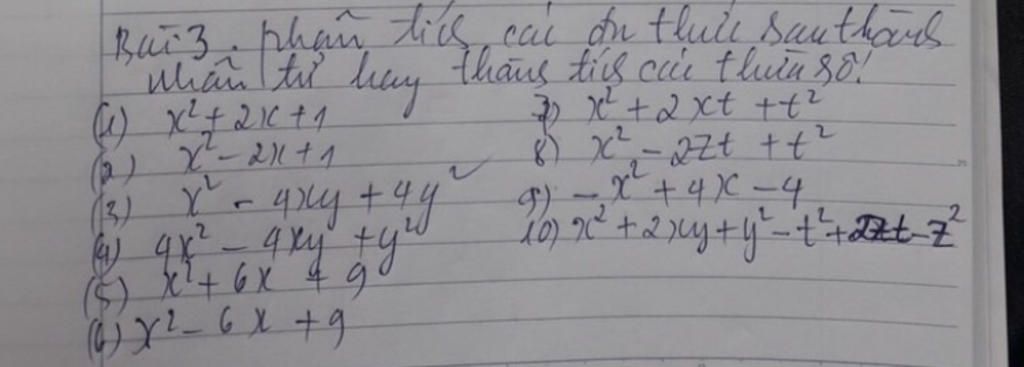 Bài 3. phân tích các đa thức sau thành
nhân tử hay thành tích các thừa số!
(1) x² + 2x + 1
(2) x² - 2x + 1
(3) x² - 4xy + 4y²
(4) 4x² - 4xy + y²
(5) x² + 6x + 9
(6) x² - 6x + 9
7) x² + 2xt + t²
8) x² - 2zt + t²
9) -x² + 4x - 4
10) x² + 2xy + y² - t² + 2zt - z²